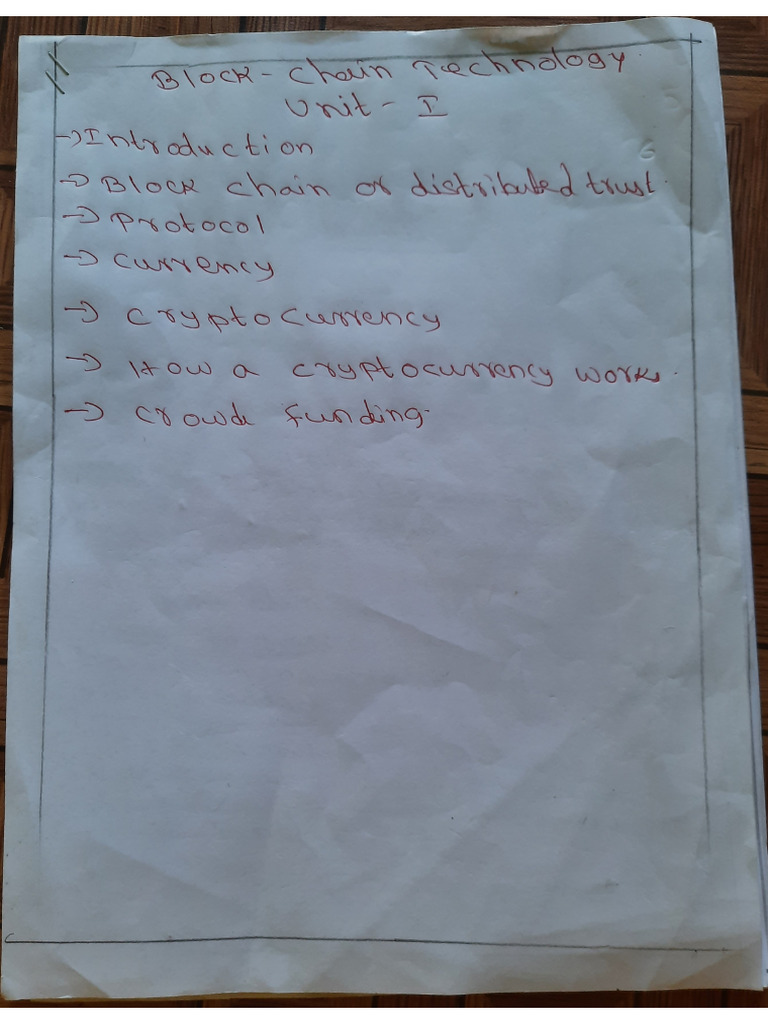 Block-Chain Technology
Unit - I
→ Introduction
→ Block chain or distributed trust.
→ Protocol
→ Currency
→ Cryptocurrency
→ How a cryptocurrency works.
→ Crowd funding.